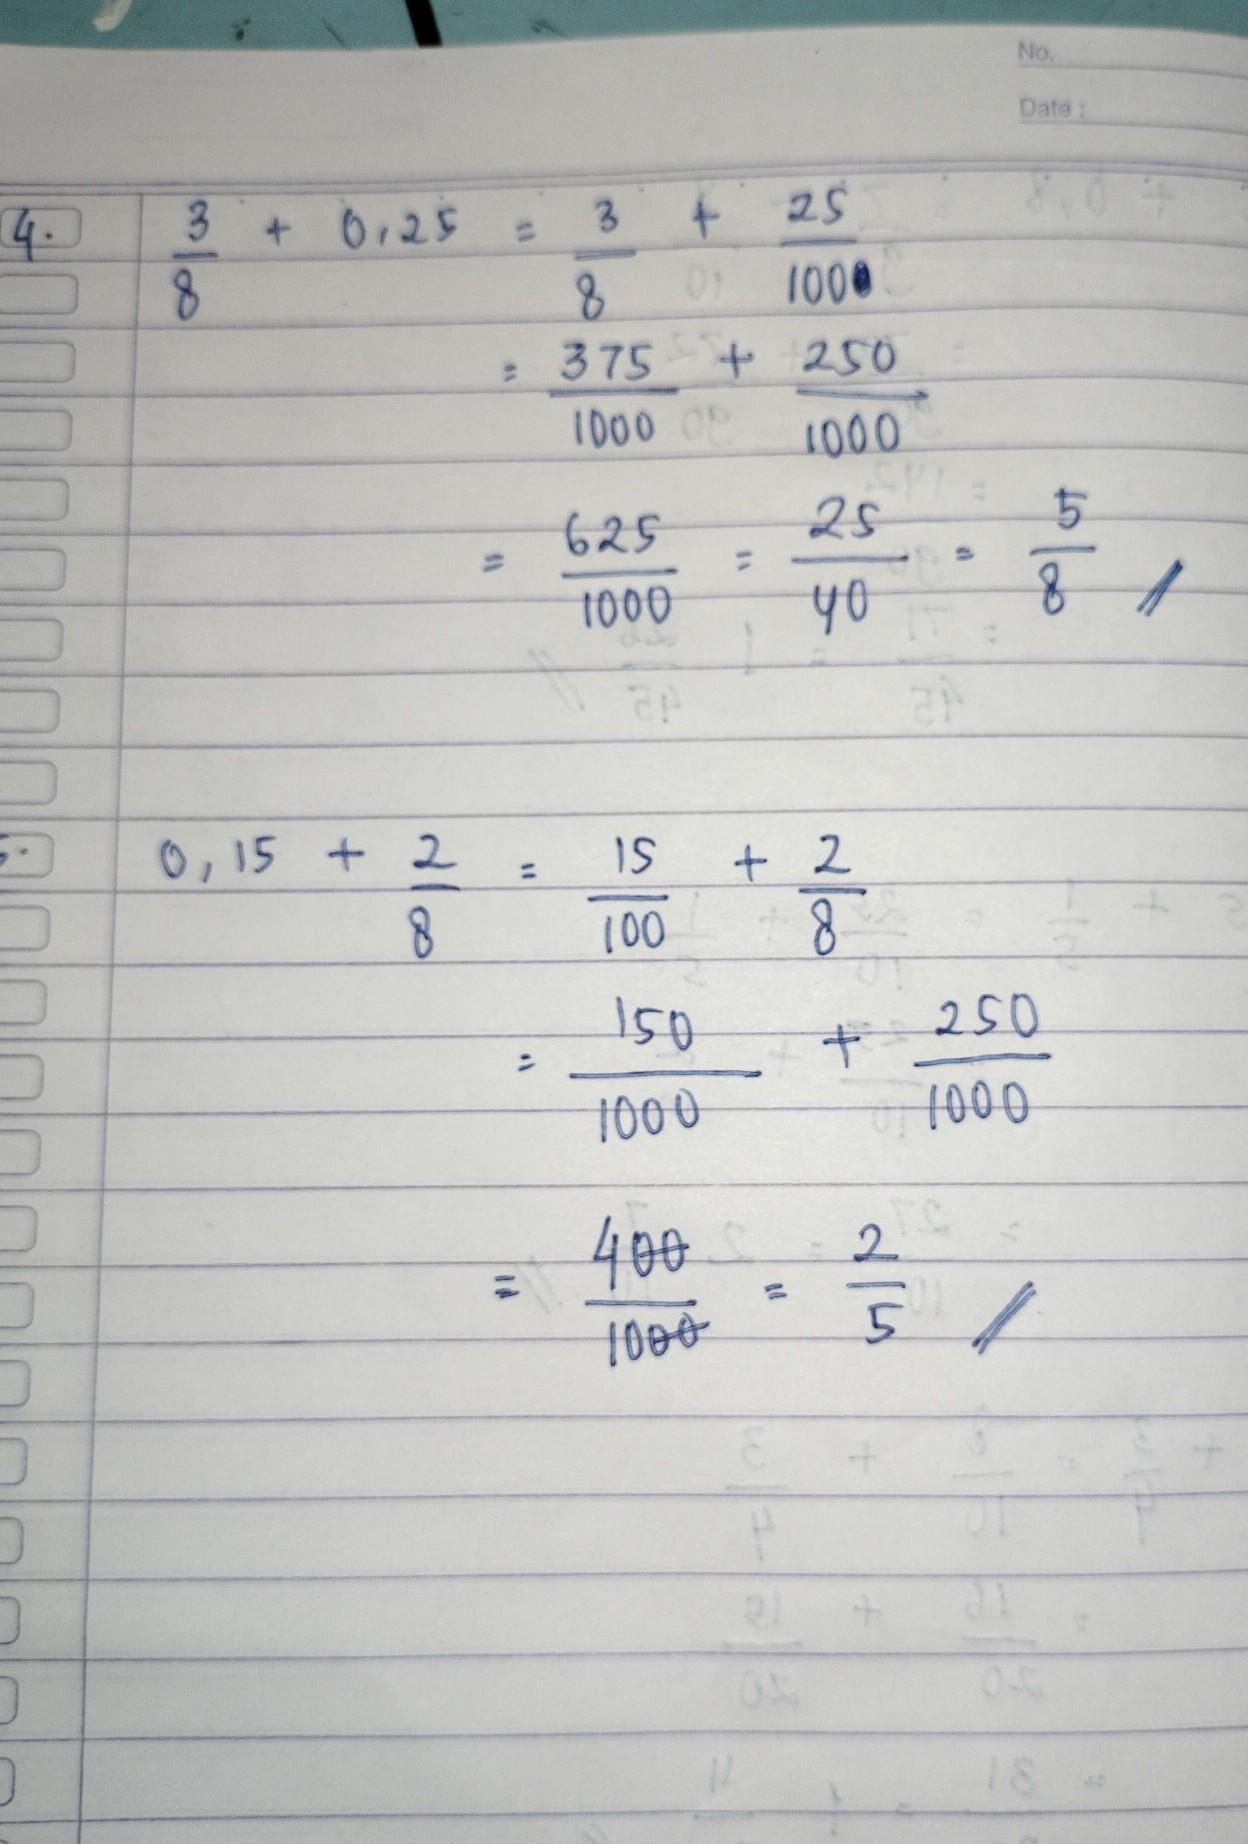 No.
Date :
4. 3/8 + 0,25 = 3/8 + 25/100
= 375/1000 + 250/1000
= 625/1000 = 25/40 = 5/8 //
5. 0,15 + 2/8 = 15/100 + 2/8
= 150/1000 + 250/1000
= 400/1000 = 2/5 //